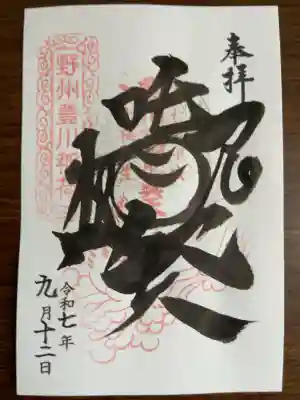 奉拝
吒枳尼天
野州豊川稲荷
令和七年
九月十二日